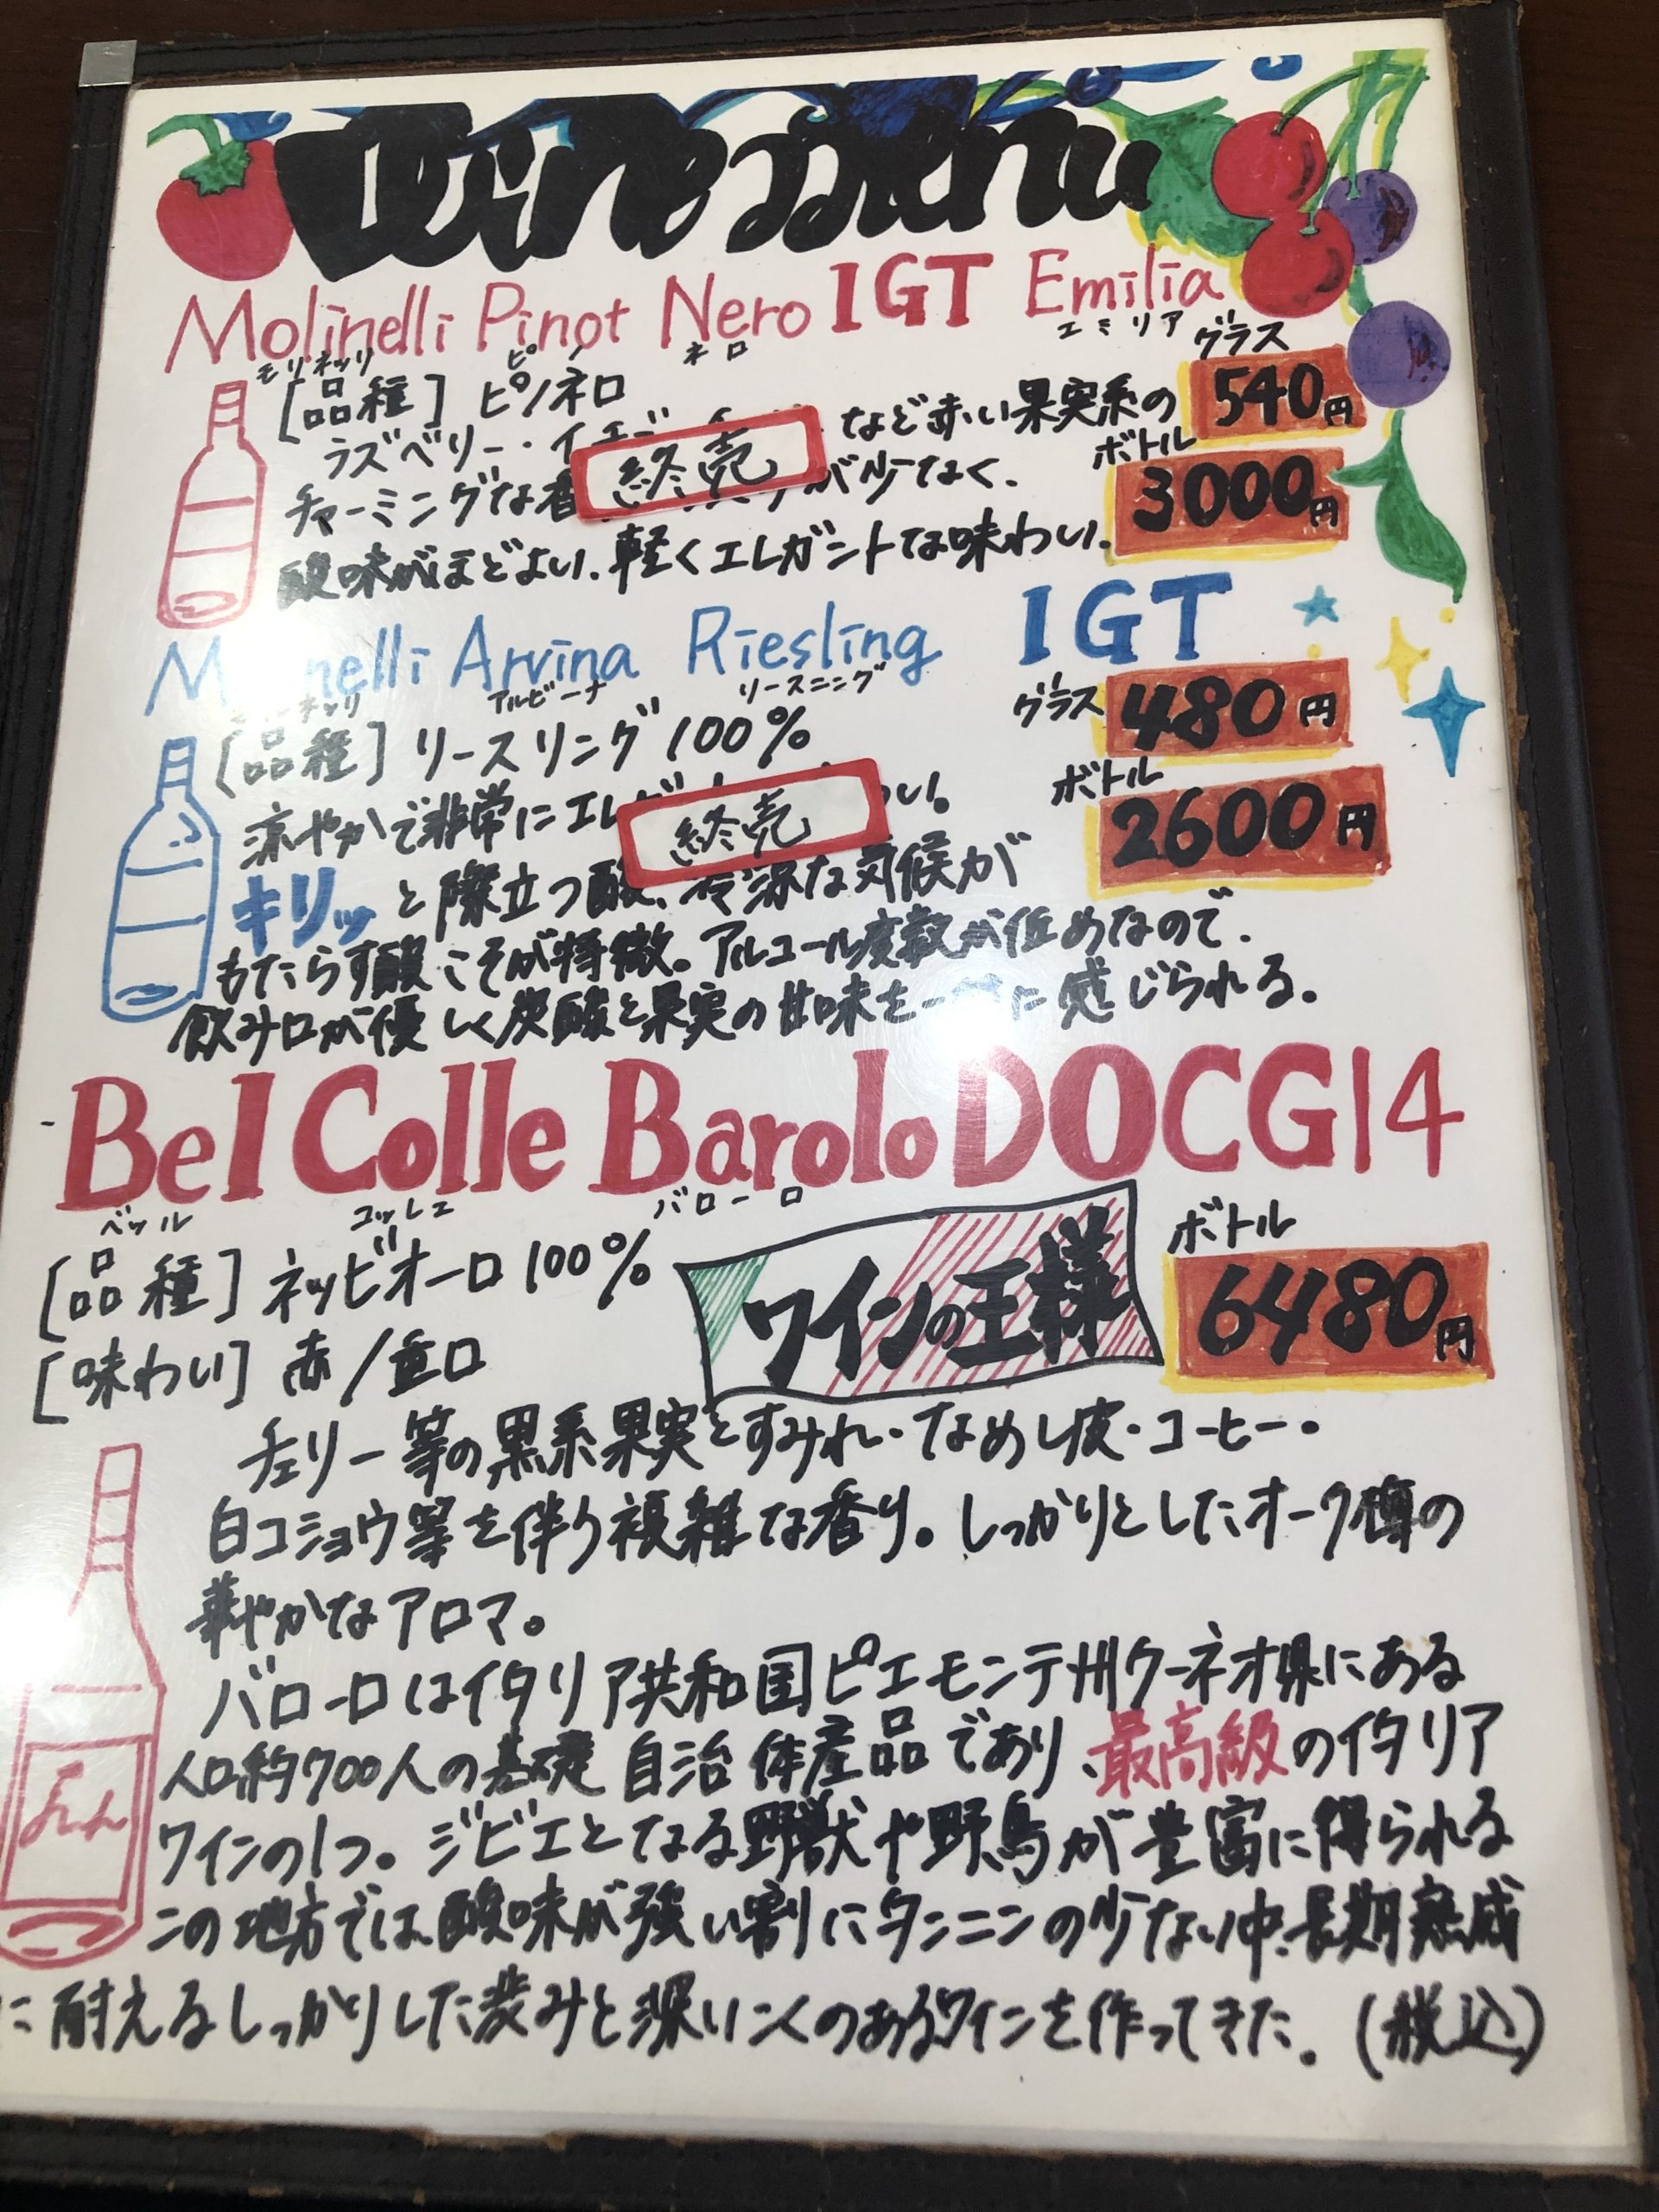 Wine Menu
Molinelli Pinot Nero IGT Emilia
モリネッリ ピノ ネロ エミリア
グラス
[品種] ピノネロ
540円
ラズベリー・イチゴ など赤い果実系の
ボトル
チャーミングな香 終売 が少なく、
3000円
酸味がほどよい、軽くエレガントな味わい。
M nelli Arvina Riesling IGT
ネッリ アルビーナ リースニング
グラス 480円
[品種] リースリング 100%
ボトル
涼やかで非常にエレガ 終売 わい。
2600円
キリッと際立つ酸、冷涼な気候が
もたらす酸こそが特徴。アルコール度数が低めなので、
飲み口が優しく炭酸と果実の甘味を一 に感じられる。
Bel Colle Barolo DOCG14
ベッル コッレエ バローロ
ボトル
[品種] ネッビオーロ100%
ワインの王様
6480円
[味わい] 赤/重口
チェリー等の黒系果実とすみれ・なめし皮・コーヒー・
白コショウ等を伴う複雑な香り。しっかりとしたオーク樽の
華やかなアロマ。
バローロはイタリア共和国ピエモンテ州クーネオ県にある
人口約700人の基礎自治体産品であり、最高級のイタリア
ワインの1つ。ジビエとなる野獣や野鳥が豊富に得られる
この地方では、酸味が強い割にタンニンの少ない中、長期熟成
に耐えるしっかりした渋みと深いコクのあるワインを作ってきた。(税込)